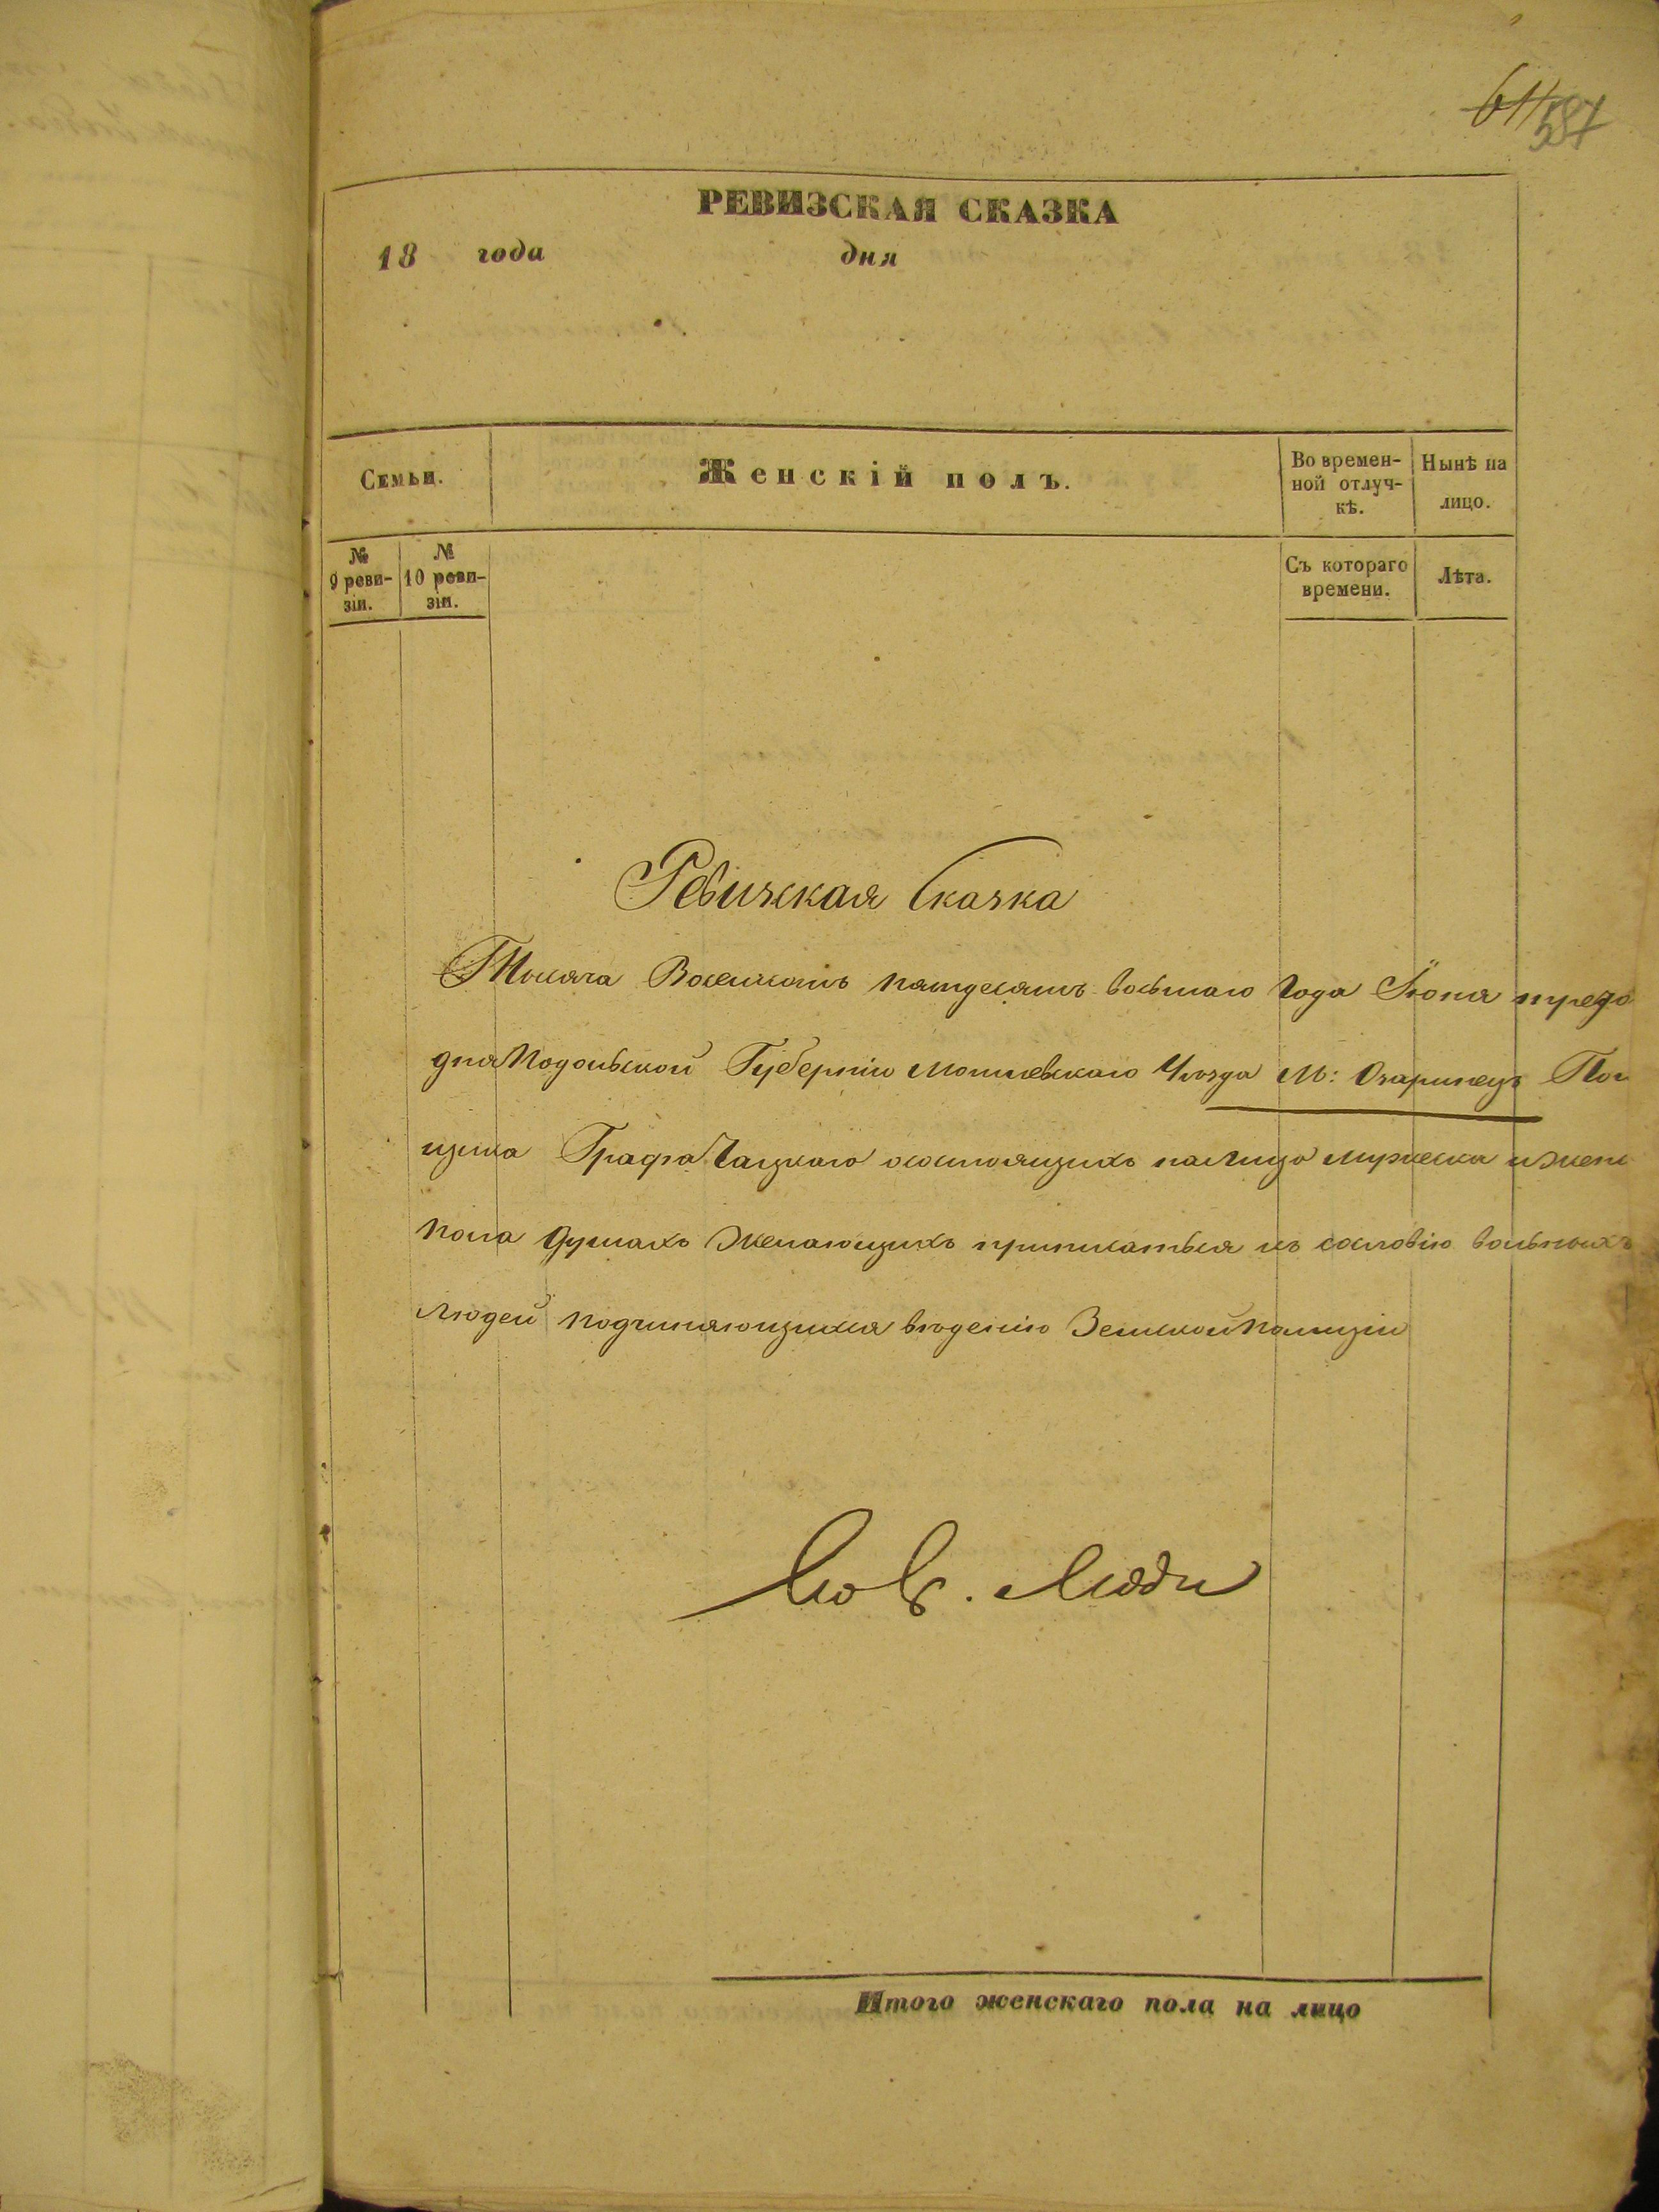 611 587
РЕВИЗСКАЯ СКАЗКА
18 года дня
Семьи.
Женскій полъ.
Во времен-
ной отлуч-
кѣ.
Нынѣ на
лицо.
№
9 реви-
зіи.
№
10 реви-
зіи.
Съ котораго
времени.
Лѣта.
Ревизкая Сказка
Тысяча Восемсотъ пятдесятъ восьмаго Года Іюня
дня Подольской Губерніи Могилевскаго Уѣзда М: Озаринецъ Пом
щика Графа Чацкаго состоящихъ налицо мужеска и женс
пола душахъ Желающихъ приписаться къ сословію вольныхъ
людей подчиняющихся вѣденію Земской полиціи
Люди
Итого женскаго пола на лицо